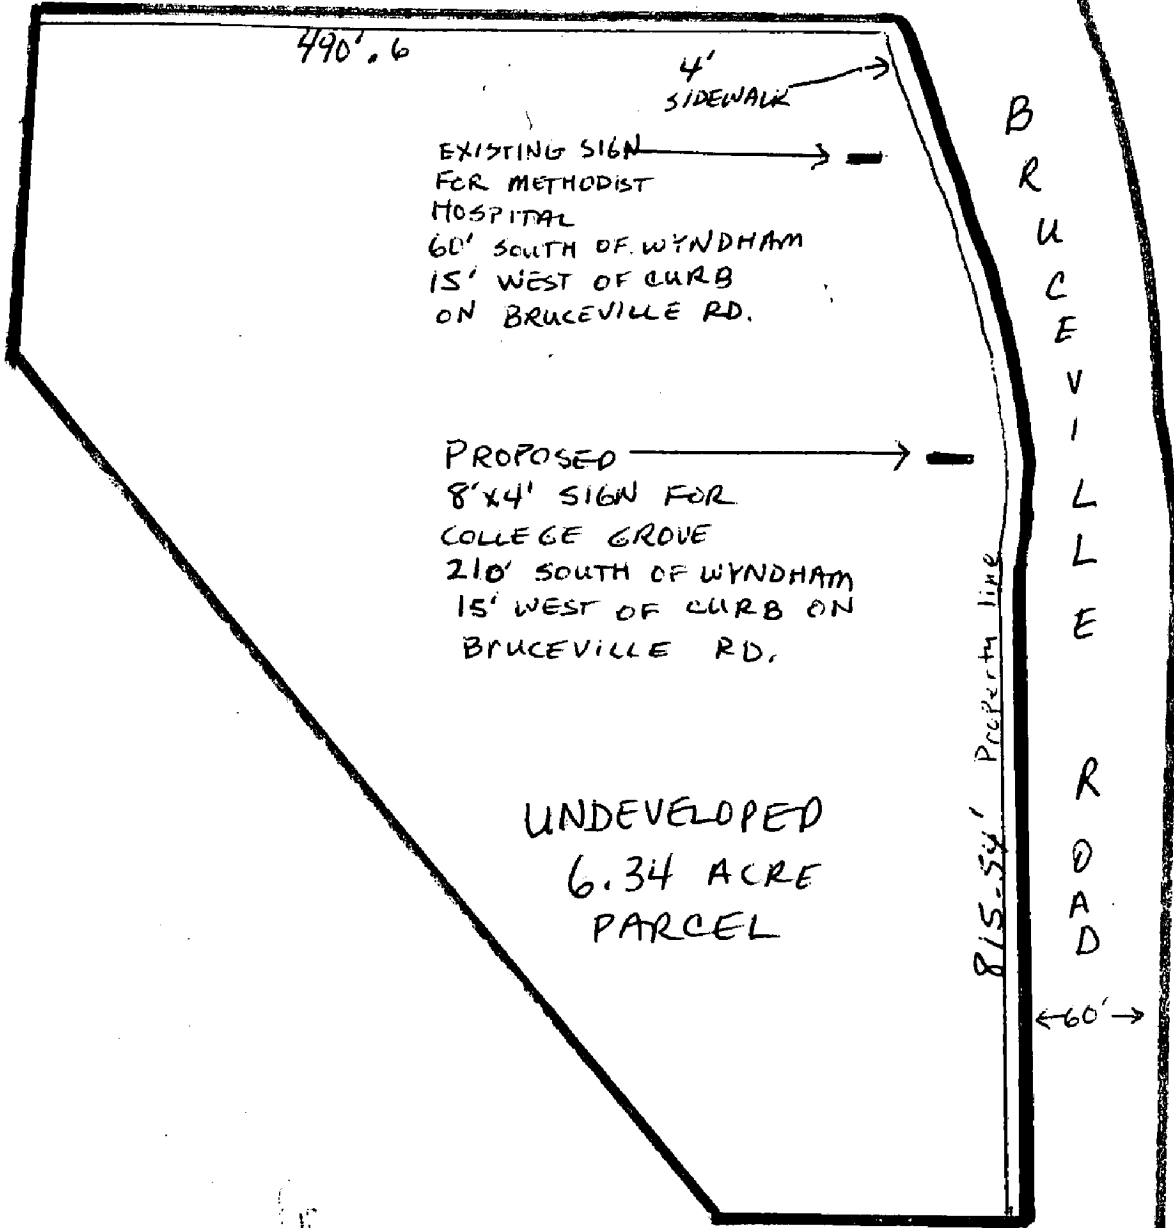 490'.6
4'
SIDEWALK
EXISTING SIGN
FOR METHODIST
HOSPITAL
60' SOUTH OF WYNDHAM
15' WEST OF CURB
ON BRUCEVILLE RD.
PROPOSED
8'x4' SIGN FOR
COLLEGE GROVE
210' SOUTH OF WYNDHAM
15' WEST OF CURB ON
BRUCEVILLE RD.
UNDEVELOPED
6.34 ACRE
PARCEL
815.54' Property line
BRUCEVILLE ROAD
60'